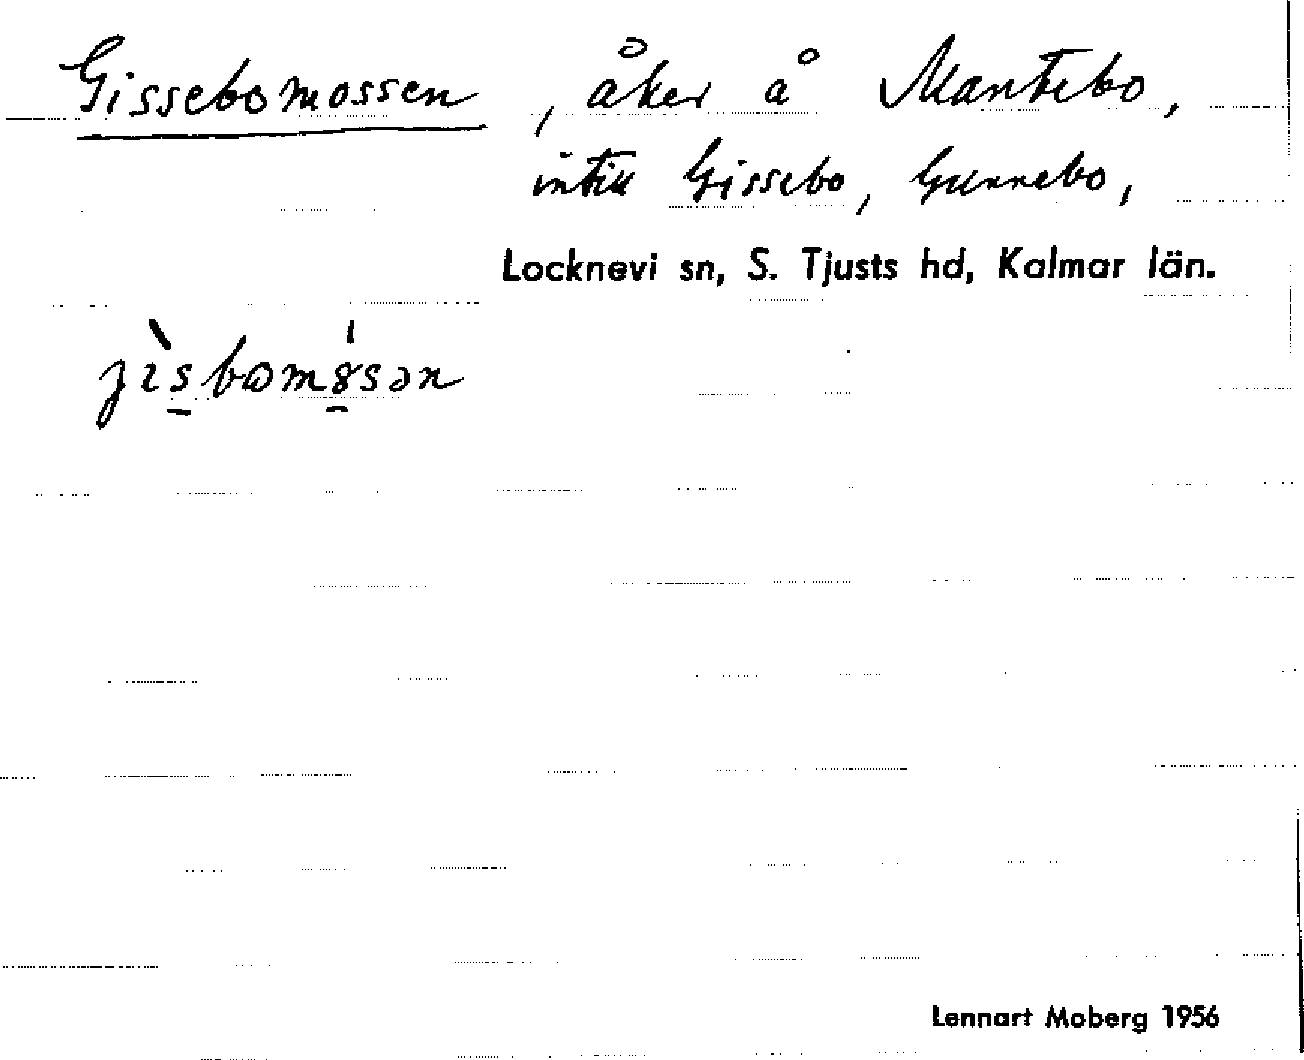 Gissebomossen, åker å Mantebo,
intill Gissebo, Gunnebo,
Locknevi sn, S. Tjusts hd, Kalmar län.
Lennart Moberg 1956